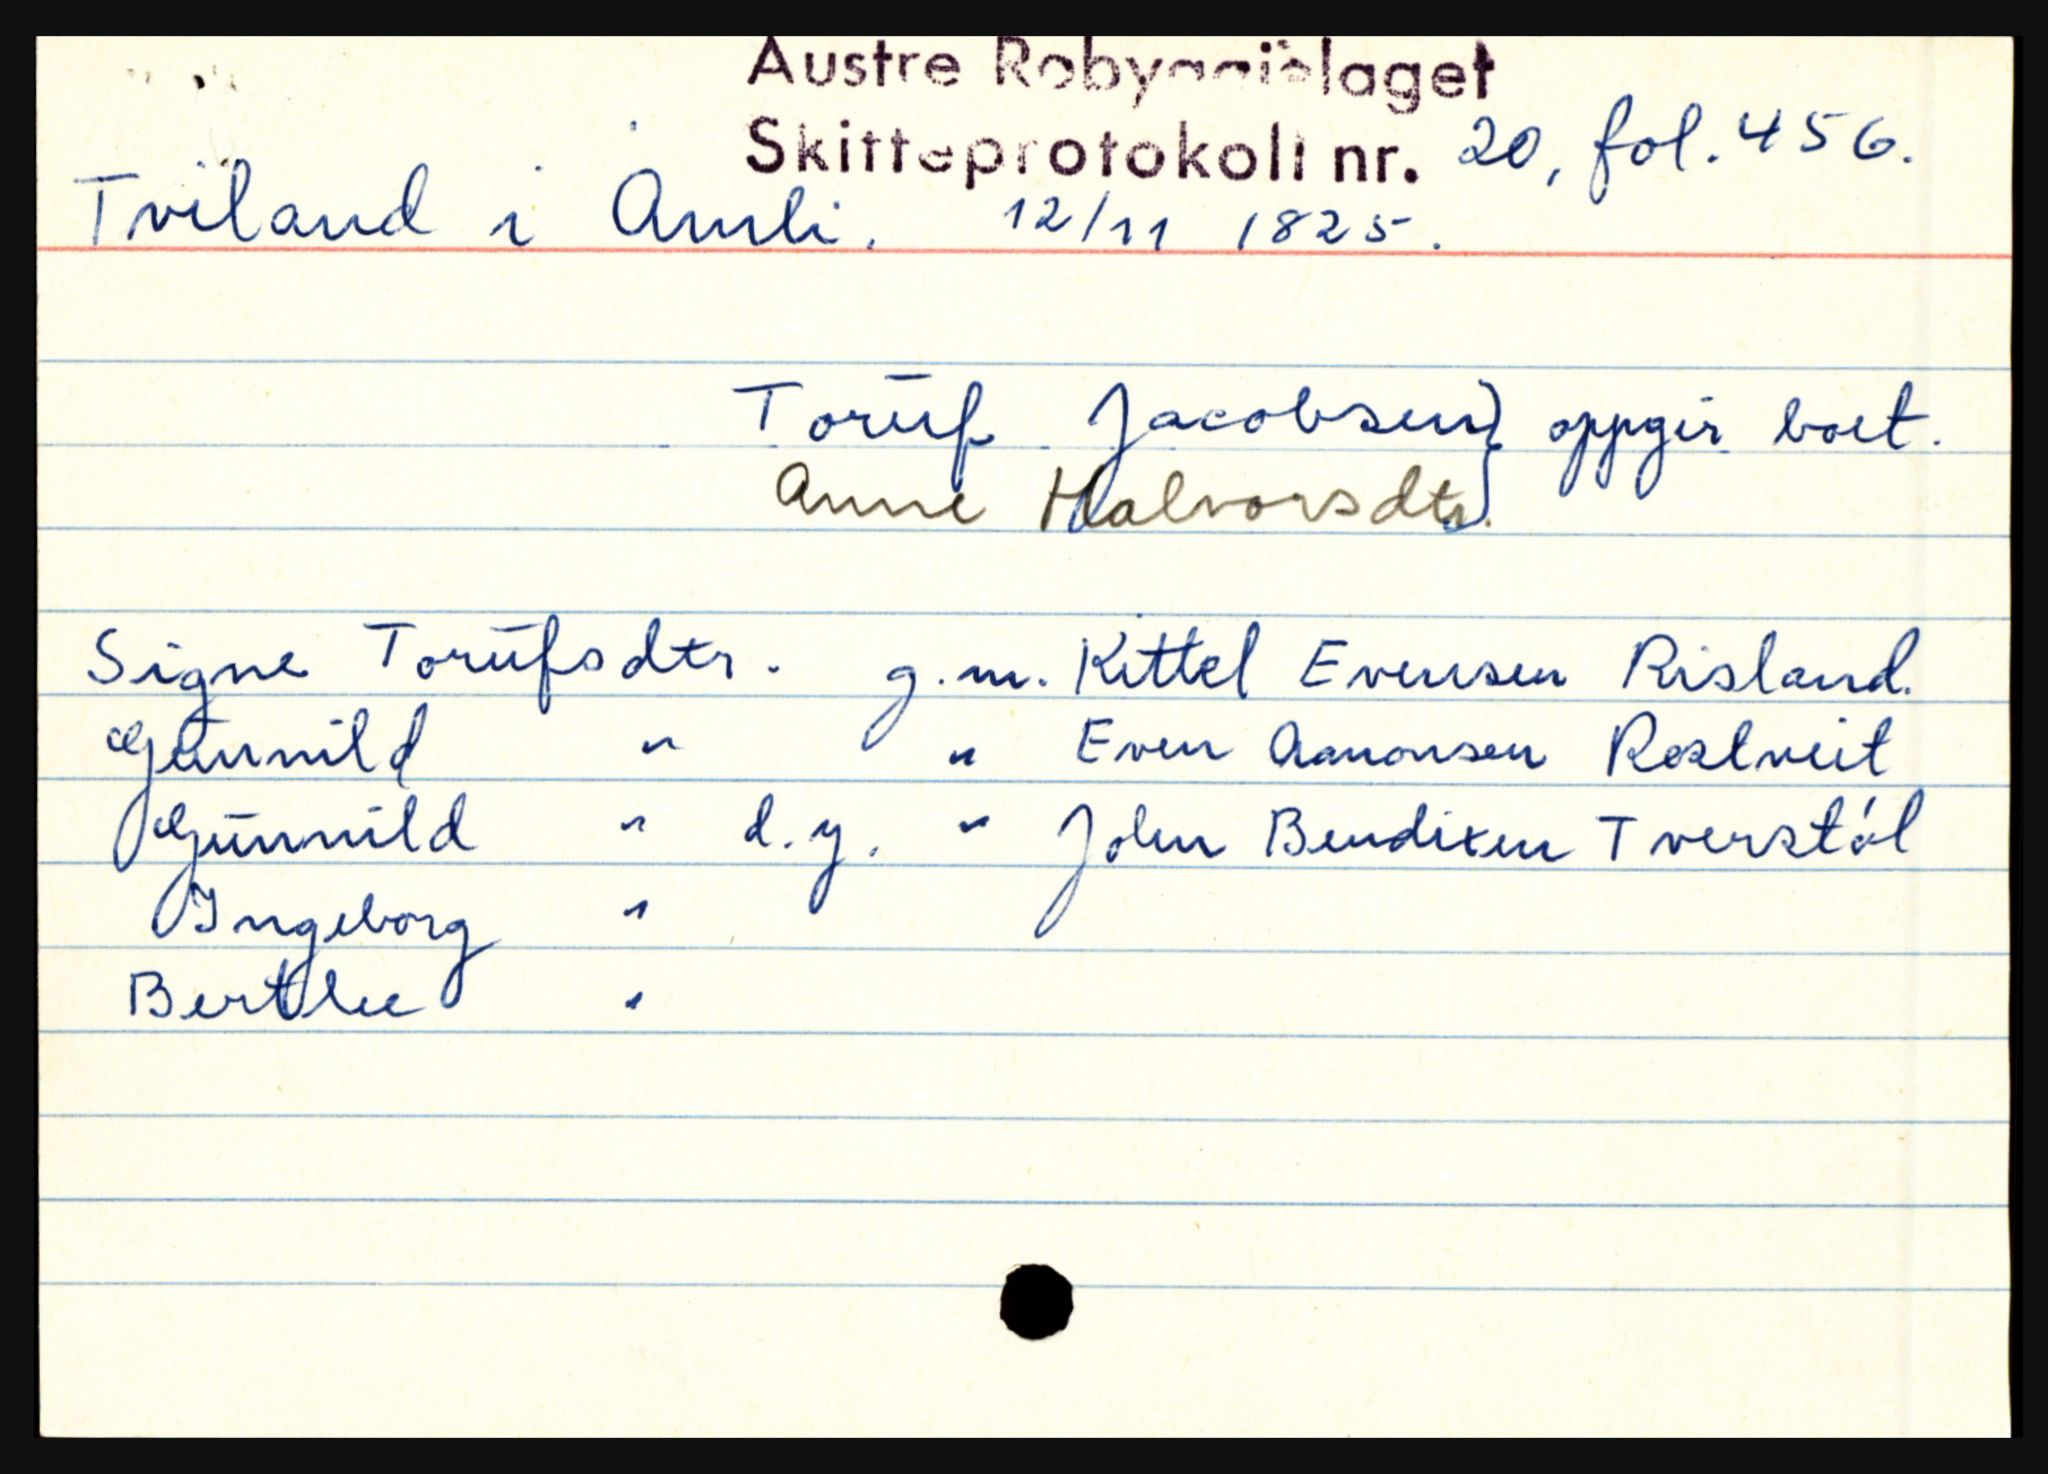 Austre Robyggjelaget
Skifteprotokoll nr. 20, fol. 456.
Tviland i Åmli. 12/11 1825.
Toruf Jacobsen } oppgir boet.
Anne Halvorsdtr. }
Signe Torufsdtr. g.m. Kittel Evensen Risland.
Gunnild " " Even Aanonsen Rostveit
Gunnild " d.y. " John Bendixen Tverstøl
Ingeborg "
Berthe "